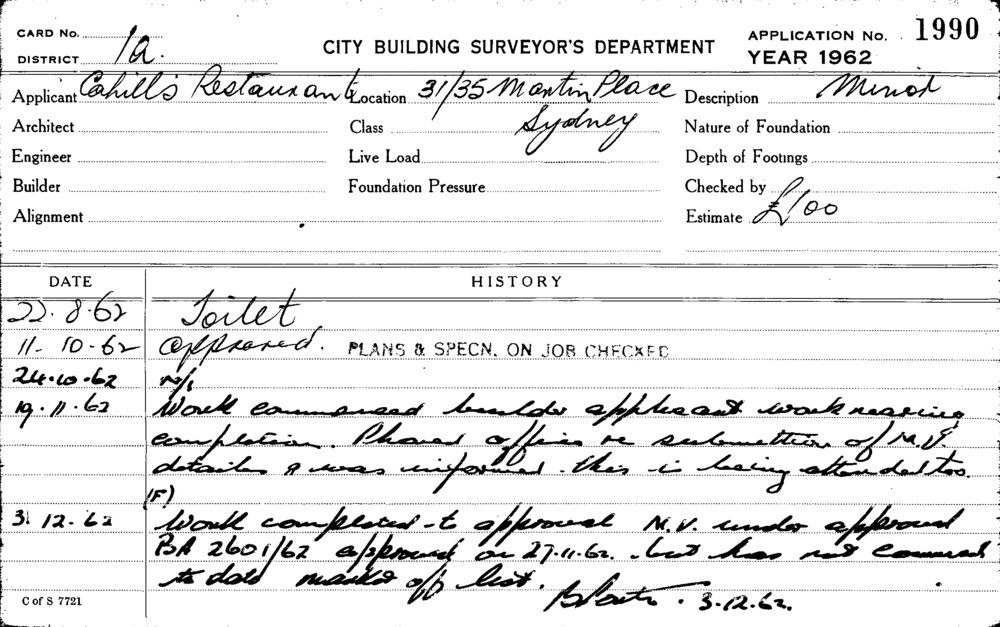 CARD No.
DISTRICT 1a.
CITY BUILDING SURVEYOR'S DEPARTMENT
APPLICATION No. 1990
YEAR 1962
Applicant Cahill's Restaurant Location 31/35 Martin Place Description Minor
Architect Class Sydney Nature of Foundation
Engineer Live Load Depth of Footings
Builder Foundation Pressure Checked by
Alignment Estimate £100
DATE HISTORY
22.8.62 Toilet
11-10-62 approved. PLANS & SPECN. ON JOB CHECKED
24.10.62 N/S
19.11.62 Work commenced builder applicant work nearing
completion. Phoned office re submission of M.V.
details & was informed this is being attended too.
(F)
3.12.62 Work completed to approval M.V. under approval
BA 2601/62 approved on 27.11.62. but has not commenced
to date marked off list.
3.12.62.
C of S 7721